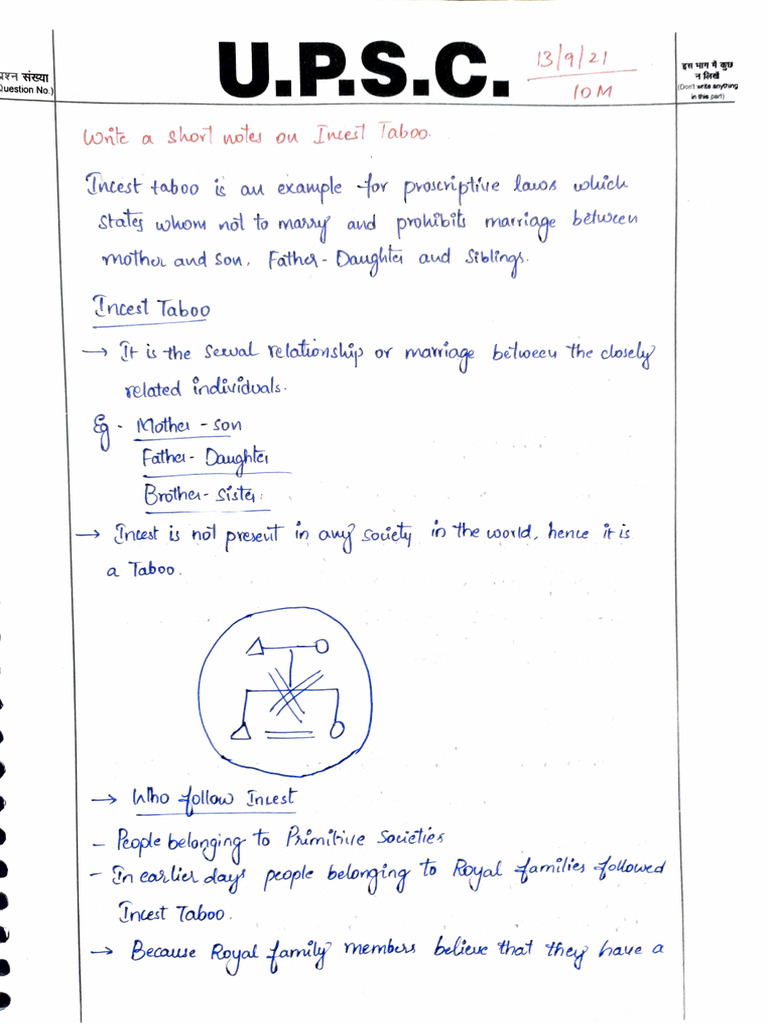 प्रश्न संख्या
Question No.)
U.P.S.C.
13/9/21
10M
इस भाग में कुछ
न लिखें
(Don't write anything
in this part)
Write a short notes on Incest Taboo.
Incest taboo is an example for proscriptive laws which
states whom not to marry and prohibits marriage between
mother and son, Father-Daughter and Siblings.
Incest Taboo
→ It is the sexual relationship or marriage between the closely
related individuals.
Eg - Mother - son
Father - Daughter
Brother - sister:
→ Incest is not present in any society in the world, hence it is
a Taboo.
→ Who follow Incest
- People belonging to Primitive Societies
- In earlier days people belonging to Royal families followed
Incest Taboo.
→ Because Royal family members believe that they have a